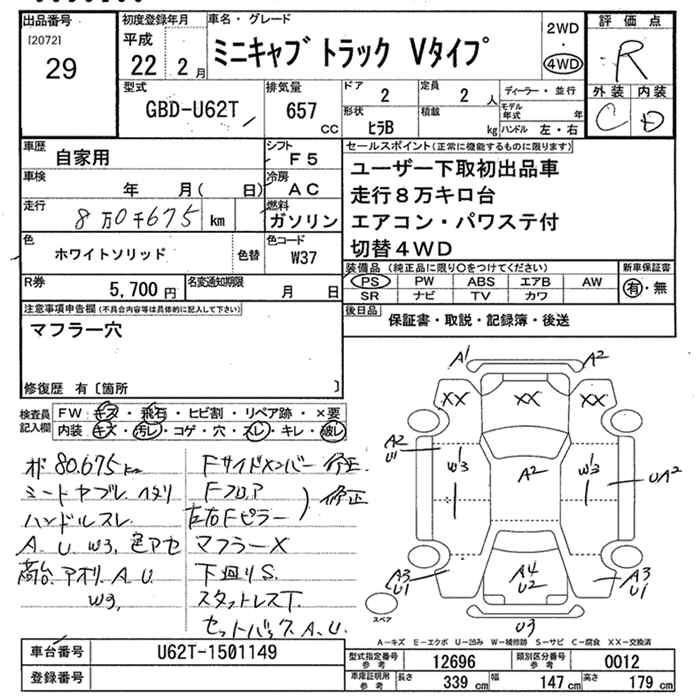 出品番号
[2072]
29
初度登録年月
平成
22 2 月
車名・グレード
ミニキャブ トラック Vタイプ
2WD
・
4WD
評価点
R
外装 内装
C D
型式
GBD-U62T
排気量
657
CC
ドア
2
定員
2 人
形状
ヒラB
積載
kg
ディーラー・並行
モデル年式 年
ハンドル 左・右
車歴
自家用
シフト
F5
車検
年 月( 日)
冷房
AC
走行
8万0千675 km
燃料
ガソリン
色
ホワイトソリッド
色替
色コード
W37
R券
5,700 円
名変通知期限
月 日
セールスポイント(正常に機能するものに限ります)
ユーザー下取初出品車
走行8万キロ台
エアコン・パワステ付
切替4WD
装備品 (純正品に限り○をつけてください)
PS PW ABS エアB AW
SR ナビ TV カワ
新車保証書
有・無
後日品
保証書・取説・記録簿・後送
注意事項申告欄(不具合内容等は具体的に記入して下さい)
マフラー穴
修復歴 有〔箇所 〕
検査員記入欄
FW キズ・飛石・ヒビ割・リペア跡・×要
内装 キズ・汚レ・コゲ・穴・スレ・キレ・破レ
80.675km
シートヤブレ ヘタリ
ハンドルスレ
A. U. W3, 色アセ
荷台. アオリ. A. U.
W3,
Fサイドメンバー 修正.
Fフロア
修正
左右Fピラー
マフラーX
下廻りS.
スタットレスT.
セットバック A. U.
A1 A2
XX XX XX
A2
U1
W3
A2
W3
UA2
A3
U1
A4
U2
A3
U1
U3
スペア
A-キズ E-エクボ U-凹み W-補修跡 S-サビ C-腐食 XX-交換済
車台番号
U62T-1501149
登録番号
型式指定番号 参考
12696
類別区分番号 参考
0012
車庫証明用 参考
長さ 339 cm 幅 147 cm 高さ 179 cm